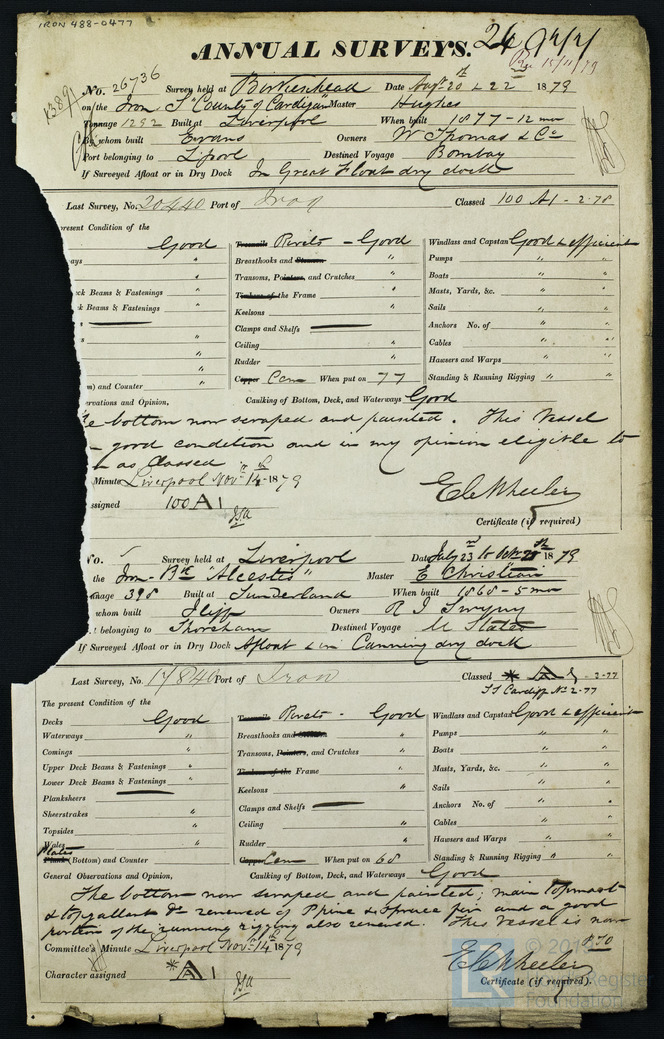 IRON 488-0477
ANNUAL SURVEYS.
No. 26736 Survey held at Birkenhead Date Augst 20 & 22nd 1879
on the Iron S "County of Cardigan" Master Hughes
Tonnage 1292 Built at Liverpool When built 1877 - 12 mo
By whom built Evans Owners W Thomas & Co
Port belonging to L'pool Destined Voyage Bombay
If Surveyed Afloat or in Dry Dock In Great Float dry dock
Last Survey, No. 20440 Port of Iron Classed 100 A1 - 2-78
present Condition of the
Good Treenails Rivets - Good Windlass and Capstan Good & efficient
ays " Breasthooks and Stemson " Pumps " "
" Transoms, Pointers, and Crutches " Boats " "
ck Beams & Fastenings " Timbers of the Frame " Masts, Yards, &c. " "
k Beams & Fastenings " Keelsons " Sails " "
s Clamps and Shelfs Anchors No. of " "
" Ceiling " Cables " "
" Rudder " Hawsers and Warps " "
m) and Counter " Copper Cem When put on 77 Standing & Running Rigging " "
ervations and Opinion, Caulking of Bottom, Deck, and Waterways Good
he bottom now scraped and painted. This Vessel
good condition and in my opinion eligible to
as Classed
Minute Liverpool Novr 14th 1879
ssigned 100 A 1
E C Wheeler
Certificate (if required)
No. Survey held at Liverpool Date July 23rd to Octr 1879
the Iron - Bk "Alcestis" Master E Christian
nage 398 Built at Sunderland When built 1868 - 5 mo
whom built Iliff Owners
t belonging to Shoreham Destined Voyage
If Surveyed Afloat or in Dry Dock Afloat & in Canning dry dock
Last Survey, No. 17840 Port of Iron Classed A 1 - 2-77
SS Cardiff No 2-77
The present Condition of the
Decks Good Treenails Rivets - Good Windlass and Capstan Good & efficient
Waterways " Breasthooks and Stemson " Pumps " "
Comings " Transoms, Pointers, and Crutches " Boats " "
Upper Deck Beams & Fastenings " Timbers of the Frame " Masts, Yards, &c. " "
Lower Deck Beams & Fastenings " Keelsons " Sails " "
Planksheers Clamps and Shelfs Anchors No. of " "
Sheerstrakes " Ceiling " Cables " "
Topsides " Rudder " Hawsers and Warps " "
Wales
Plates
Plank (Bottom) and Counter " Copper Cem When put on 68 Standing & Running Rigging " "
General Observations and Opinion, Caulking of Bottom, Deck, and Waterways Good
The bottom now scraped and painted; main topmast
& topgallant Do renewed of P pine & Spruce fir and a good
portion of the running rigging also renewed. This Vessel is now
Committee's Minute Liverpool Novr 14th 1879
Character assigned A 1
E C Wheeler
Certificate (if required).
Register
Foundation